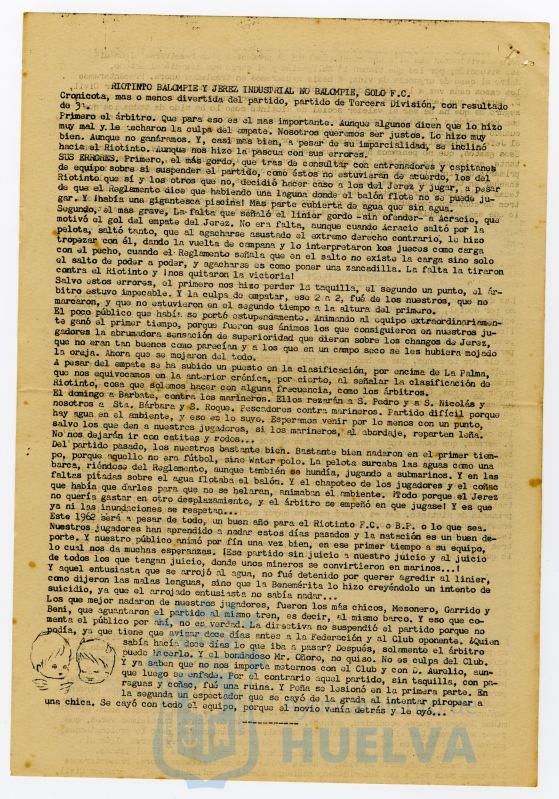 RIOTINTO BALOMPIE Y JEREZ INDUSTRIAL NO BALOMPIE, SOLO F.C.
Cronicota, mas o menos divertida del partido, partido de Tercera División, con resultado
de 31.
Primero el árbitro. Que para eso es el mas importante. Aunque algunos dicen que lo hizo
muy mal y le echaron la culpa del empate. Nosotros queremos ser justos. Lo hizo muy
bien. Aunque no ganáramos. Y, casi mas bien, a pesar de su imparcialidad, se inclinó
hacia el Riotinto. Aunque nos hizo la pascua con sus errores.
SUS ERRORES. Primero, el más gordo, que tras de consultar con entrenadores y capitanes
de equipo sobre si suspender el partido, como éstos no estuvieran de acuerdo, los del
Riotinto que sí y los otros que no, decidió hacer caso a los del Jerez y jugar, a pesar
de que el Reglamento dice que habiendo una laguna donde el balón flote no se puede ju-
gar. Y ¡había una gigantesca piscina! Mas parte cubierta de agua que sin agua.
Segundo, el mas grave. La falta que señaló el linier gordo -sin ofender- a Acracio, que
motivó el gol del empate del Jerez. No era falta, aunque cuando Acracio saltó por la
pelota, saltó tanto, que al agacharse asustado el extremo derecho contrario, le hizo
tropezar con él, dando la vuelta de campana y lo interpretaron los jueces como carga
con el pecho, cuando el Reglamento señala que en el salto no existe la carga sino solo
el salto de poder a poder, y agacharse es como poner una zancadilla. La falta la tiraron
contra el Riotinto y ¡nos quitaron la victoria!
Salvo estos errores, el primero nos hizo perder la taquilla, el segundo un punto, el ár-
bitro estuvo impecable. Y la culpa de empatar, eso 2 a 2, fué de los nuestros, que no
marcaron, y que no estuvieron en el segundo tiempo a la altura del primero.
El poco público que había se portó estupendamente. Animando al equipo extraordinariamen-
te ganó el primer tiempo, porque fueron sus ánimos los que consiguieron en nuestros ju-
gadores la abrumadora sensación de superioridad que dieron sobre los changos de Jerez,
que no eran tan buenos como parecían y a los que en un campo seco se les hubiera mojado
la oreja. Ahora que se mojaron del todo.
A pesar del empate se ha subido un puesto en la clasificación, por encima de La Palma,
que nos equivocamos en la anterior crónica, por cierto, al señalar la clasificación de
Riotinto, cosa que solemos hacer con alguna frecuencia, como los árbitros.
El domingo a Barbate, contra los marineros. Ellos rezarán a S. Pedro y a S. Nicolás y
nosotros a Sta. Bárbara y S. Roque. Pescadores contra marineros. Partido difícil porque
hay agua en el ambiente, y eso en lo suyo. Esperamos venir por lo menos con un punto,
salvo los que den a nuestros jugadores, si los marineros, al abordaje, reparten leña.
No nos dejarán ir con catites y rodos...
Del partido pasado, los nuestros bastante bien. Bastante bien nadaron en el primer tiem-
po, porque aquello no era fútbol, sino Water polo. La pelota surcaba las aguas como una
barca, riéndose del Reglamento, aunque también se hundía, jugando a submarinos. Y en las
faltas pitadas sobre el agua flotaba el balón. Y el chapoteo de los jugadores y el coñac
que había que darles para que no se helaran, animaban el ambiente. ¡Todo porque el Jerez
no quería gastar en otro desplazamiento, y el árbitro se empeñó en que jugase! Y es que
ya ni las inundaciones se respetan...
Este 1962 será a pesar de todo, un buen año para el Riotinto F.C. o B.P. o lo que sea.
Nuestros jugadores han aprendido a nadar estos días pasados y la natación es un buen de-
porte. Y nuestro público animó por fín una vez bien, en ese primer tiempo a su equipo,
lo cual nos da muchas esperanzas. ¡Ese partido sin juicio a nuestro juicio y al juicio
de todos los que tengan juicio, donde unos mineros se convirtieron en marinos...!
Y aquel entusiasta que se arrojó al agua, no fué detenido por querer agredir al linier,
como dijeron las malas lenguas, sino que la Benemérita lo hizo creyéndolo un intento de
suicidio, ya que el arrojado entusiasta no sabía nadar...
Los que mejor nadaron de nuestros jugadores, fueron los más chicos, Mesonero, Garrido y
Beni, que aguantaron el partido al mismo tren, es decir, al mismo barco. Y eso que co-
menta el público por ahí, no es verdad. La directiva no suspendió el partido porque no
podía, ya que tiene que avisar doce días antes a la Federación y al Club oponente. ¿Quien
sabía hacía doce días lo que iba a pasar? Después, solamente el árbitro
puede hacerlo. Y el bondadoso Mr. Oñoro, no quiso. No es culpa del Club.
Y ya saben que no nos importa meternos con el Club y con D. Aurelio, aun-
que luego se enfade. Por el contrario aquel partido, sin taquilla, con pa-
raguas y coñac, fué una ruina. Y Peña se lesionó en la primera parte. En
la segunda un espectador que se cayó de la grada al intentar piropear a
una chica. Se cayó con todo el equipo, porque el novio venía detrás y le oyó...
HUELVA